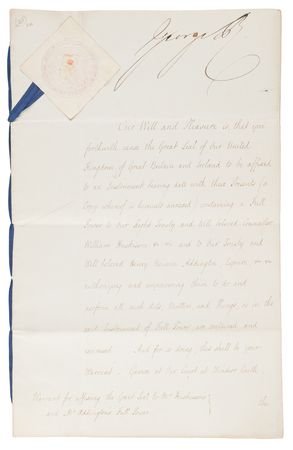 George R.
Our Will and Pleasure is, that you
forthwith cause the Great Seal of Our United
Kingdom of Great Britain and Ireland to be affixed
to an Instrument bearing date with these Presents (a
Copy whereof is hereunto annexed) containing a Full
Power to Our Right Trusty and Well beloved Councillor
William Huskisson and to Our Trusty and
Well beloved Henry Unwin Addington, Esquire,
authorizing and empowering them to do and
perform all such Acts, Matters and Things, as in the
said Instrument of Full Power are contained and
expressed. And for so doing this shall be your
Warrant. Given at Our Court at Windsor Castle
the
Warrant for affixing the Great Seal to Mr Huskisson's
and Mr Addington's Full Power